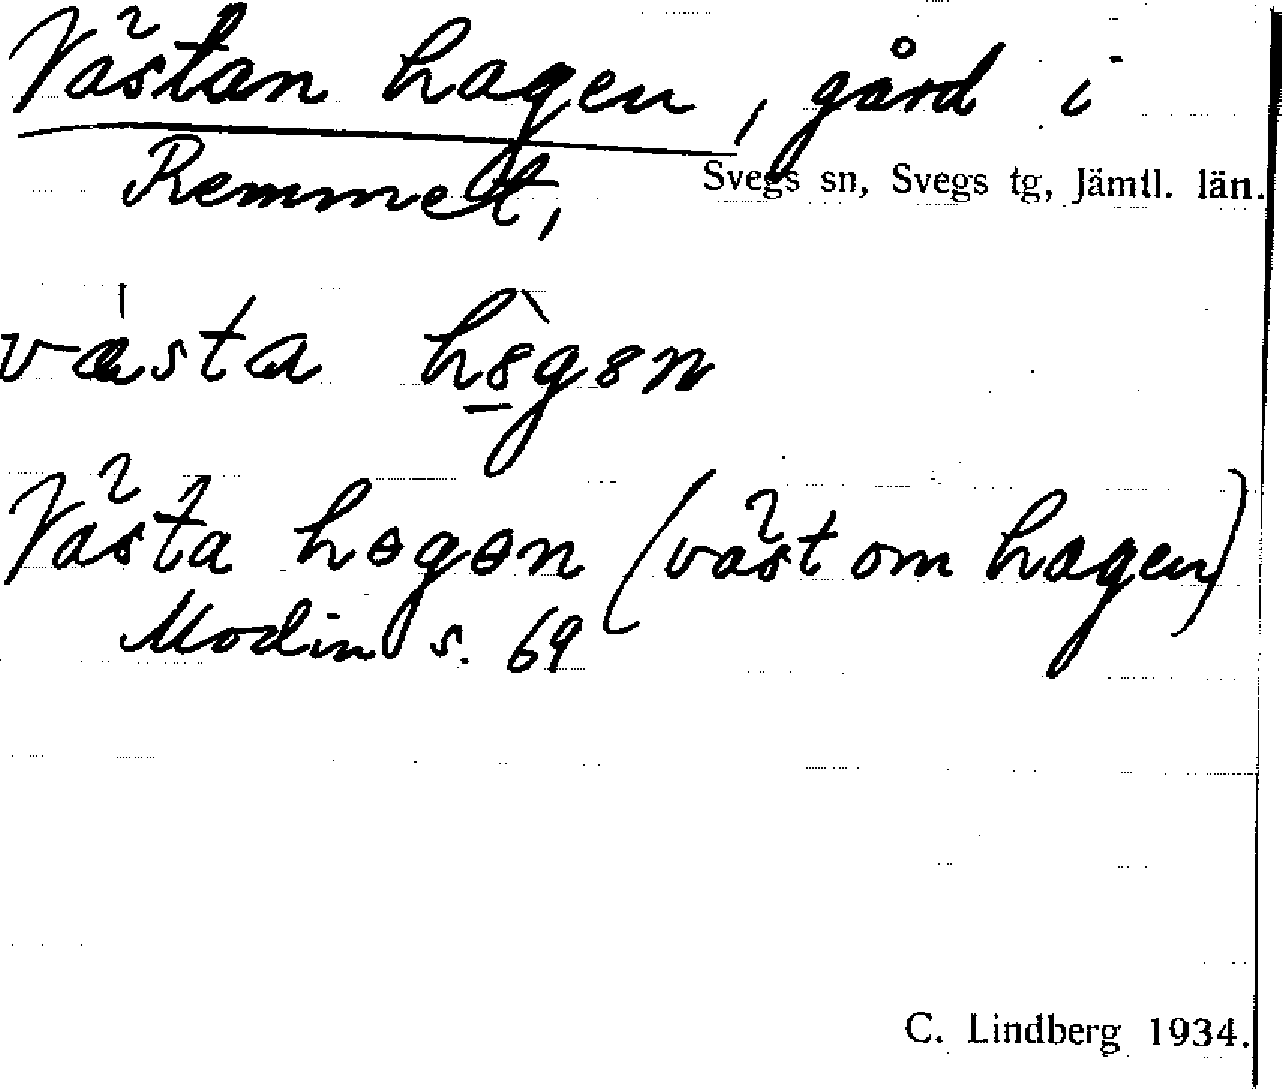 Västan hagen, gård i
Remmet, Svegs sn, Svegs tg, Jämtl. län.
västa həgən
Västa həgən (väst om hagen)
Modin s. 69
C. Lindberg 1934.